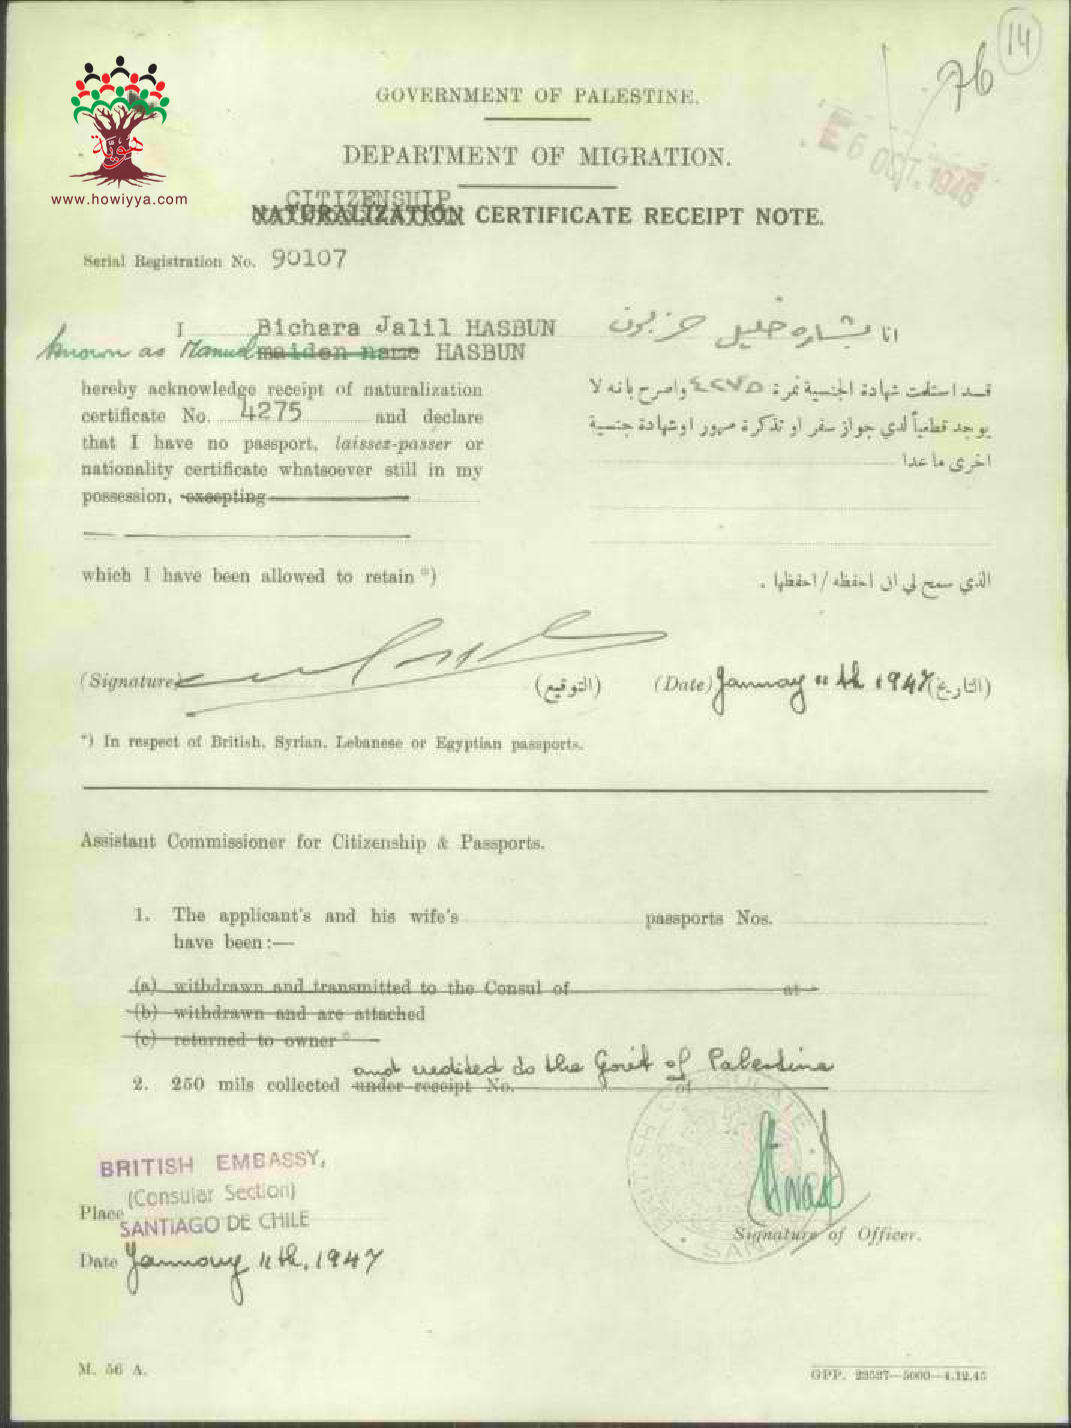 14
76
هوية
www.howiyya.com
GOVERNMENT OF PALESTINE.
E 6 OCT. 1946
DEPARTMENT OF MIGRATION.
CITIZENSHIP
NATURALIZATION CERTIFICATE RECEIPT NOTE.
Serial Registration No. 90107
I Bichara Jalil HASBUN
known as Manuel maiden name HASBUN
hereby acknowledge receipt of naturalization
certificate No. 4275 and declare
that I have no passport, laissez-passer or
nationality certificate whatsoever still in my
possession, excepting
which I have been allowed to retain *)
انا بشاره خليل حزبون
قد استلمت شهادة الجنسية نمرة ٤٢٧٥ واصرح بانه لا
يوجد قطعياً لدي جواز سفر او تذكرة مرور او شهادة جنسية
اخرى ما عدا
الذي سمح لي ان احفظه / احفظها .
(Signature) (التوقيع) (Date) January 11th 1947 (التاريخ)
*) In respect of British, Syrian, Lebanese or Egyptian passports.
Assistant Commissioner for Citizenship & Passports.
1. The applicant's and his wife's passports Nos.
have been:—
(a) withdrawn and transmitted to the Consul of at
(b) withdrawn and are attached
(c) returned to owner *
and credited to the Gov't of Palestine
2. 250 mils collected under receipt No. of
BRITISH EMBASSY,
(Consular Section)
Place SANTIAGO DE CHILE
Signature of Officer.
Date January 11th, 1947
M. 56 A.
GPP. 23537—5000—4.12.45